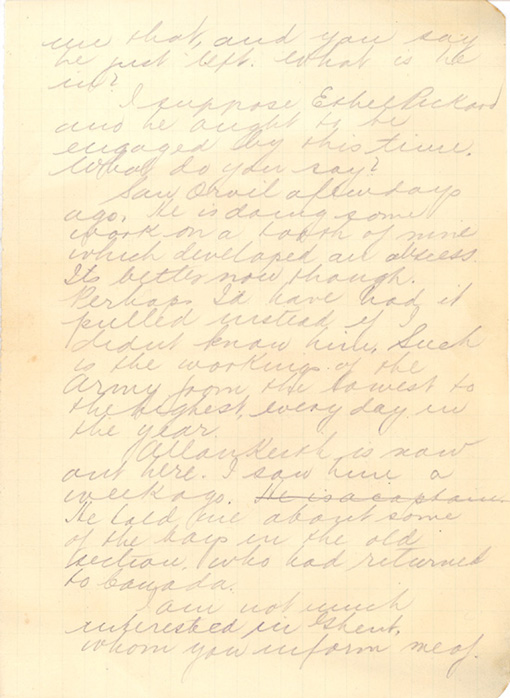 me that, and you say
he just left. What is he
in?
I suppose Ethel Pickard
and he ought to be
engaged by this time.
What do you say?
Saw Orvil a few days
ago. He is doing some
work on a tooth of mine
which developed an abscess.
Its better now though.
Perhaps I'd have had it
pulled instead if I
didnt know him. Such
is the workings of the
Army from the lowest to
the highest, every day in
the year.
Allan Keith is now
out here. I saw him a
week ago. He is a captain.
He told me about some
of the boys in the old
section, who had returned
to Canada.
I am not much
interested in Ghent,
whom you inform me of.